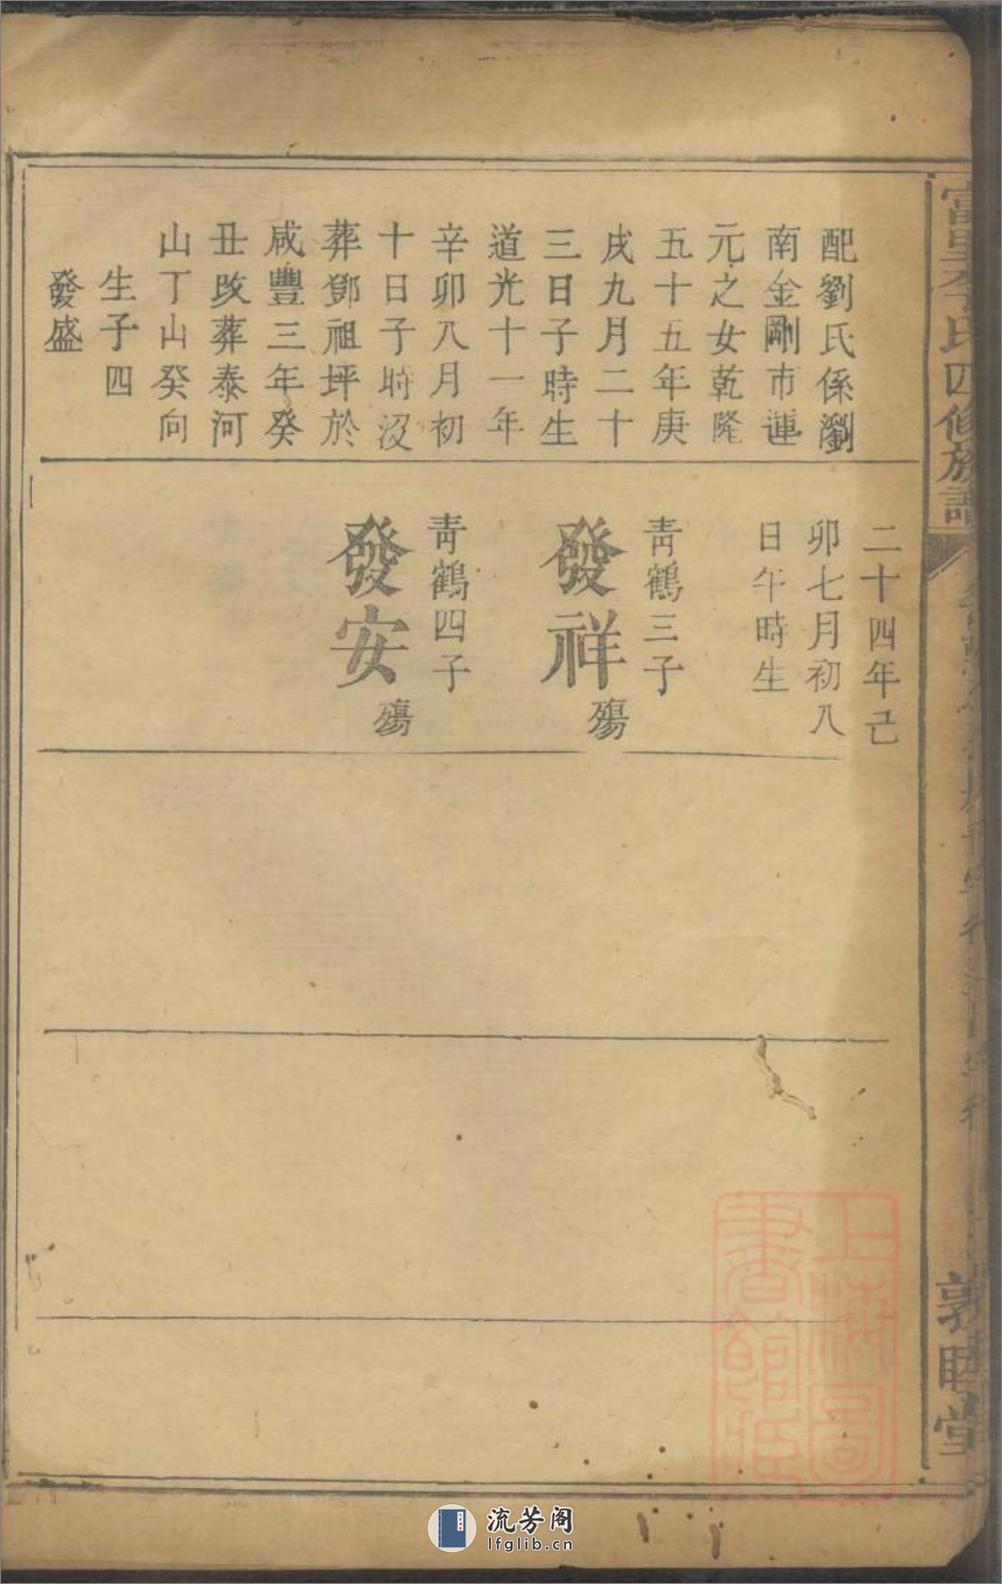 富里李氏四修族譜
敦睦堂
配劉氏係瀏
南金剛市連
元之女乾隆
五十五年庚
戌九月二十
三日子時生
道光十一年
辛卯八月初
十日子時沒
葬鄧祖坪於
咸豐三年癸
丑改葬泰河
山丁山癸向
生子四
發盛
二十四年己
卯七月初八
日午時生
青鶴三子
發祥殤
青鶴四子
發安殤
上海圖
書館藏
流芳阁
lfglib.cn